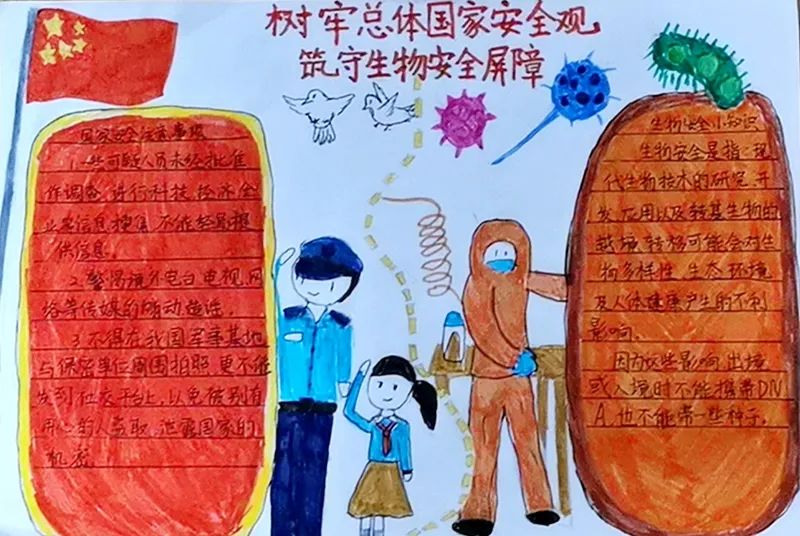 树牢总体国家安全观
筑守生物安全屏障
国家安全注意事项
1.一些可疑人员未经批准
作调查,进行科技,经济企
业等信息搜集,不能轻易提
供信息。
2.警惕境外电台电视,网
络等传媒的煽动造谣。
3.不得在我国军事基地
与保密单位周围拍照,更不能
发到社交平台上,以免被别有
用心的人窃取,泄露国家的
机密
生物安全小知识
生物安全是指:现
代生物技术的研究、开
发、应用以及转基生物的
越境转移可能会对生
物多样性、生态环境
及人体健康产生的不利
影响。
因为这些影响,出境
或入境时不能携带DN
A,也不能带一些种子。